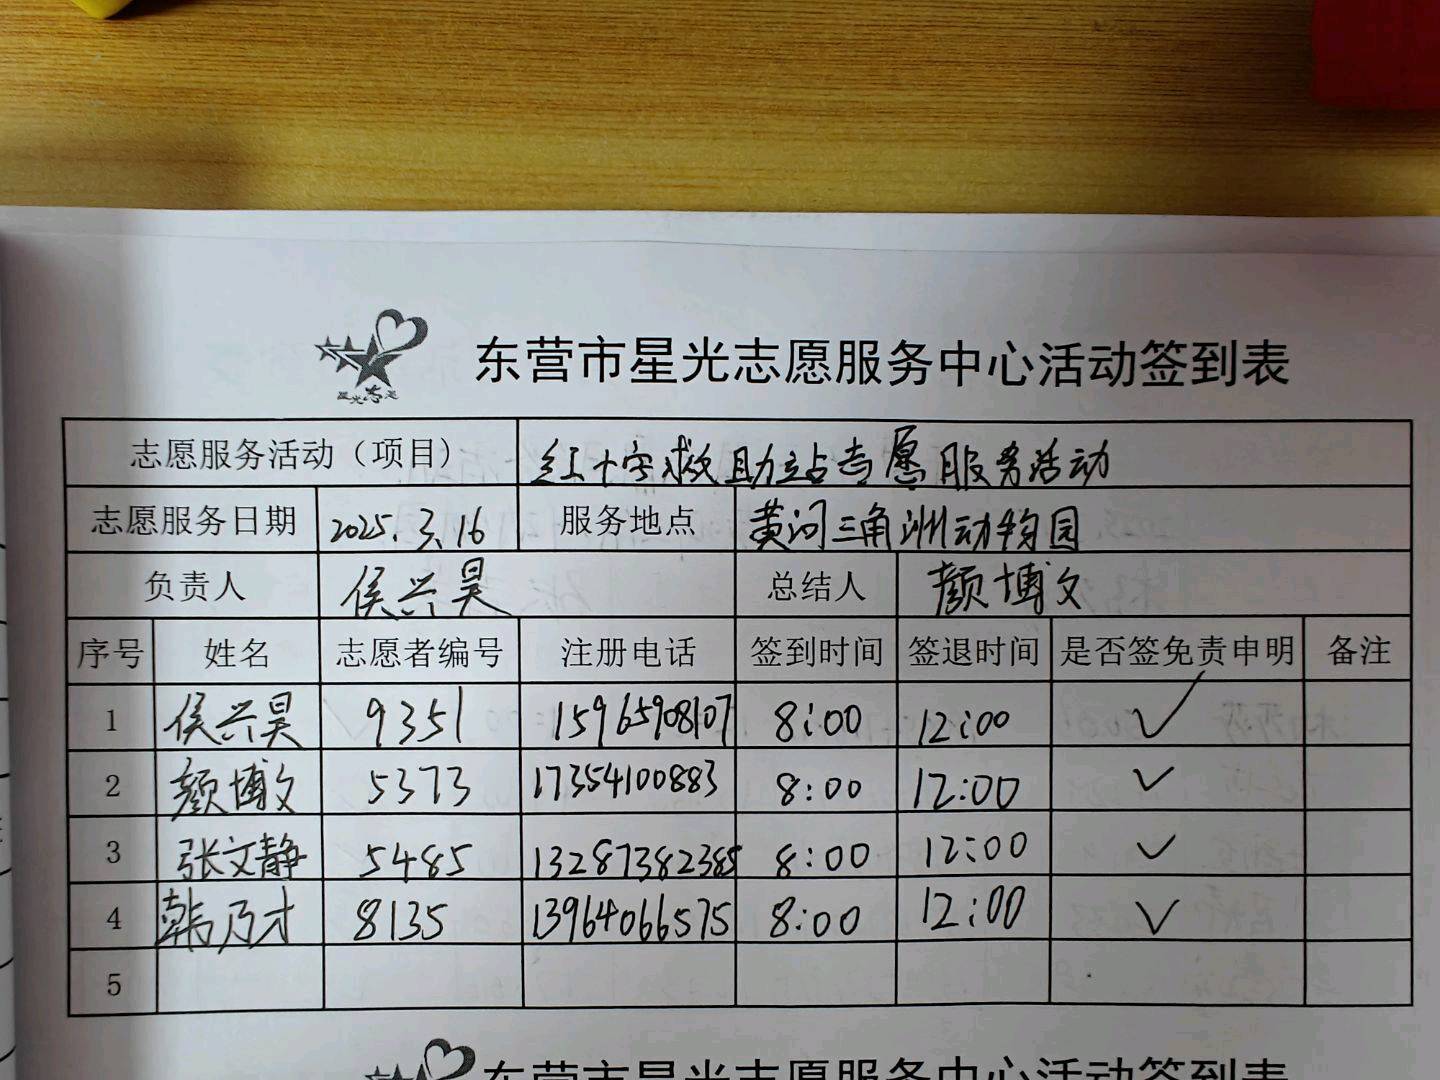 星光志愿
东营市星光志愿服务中心活动签到表
志愿服务活动（项目） 红十字救助站志愿服务活动
志愿服务日期 2025.3.16 服务地点 黄河三角洲动物园
负责人 侯兴昊 总结人 颜博文
序号 姓名 志愿者编号 注册电话 签到时间 签退时间 是否签免责申明 备注
1 侯兴昊 9351 15965908107 8:00 12:00 ✓
2 颜博文 5373 17354100883 8:00 12:00 ✓
3 张文静 5485 13287382385 8:00 12:00 ✓
4 韩乃才 8135 13964066575 8:00 12:00 ✓
5
东营市星光志愿服务中心活动签到表